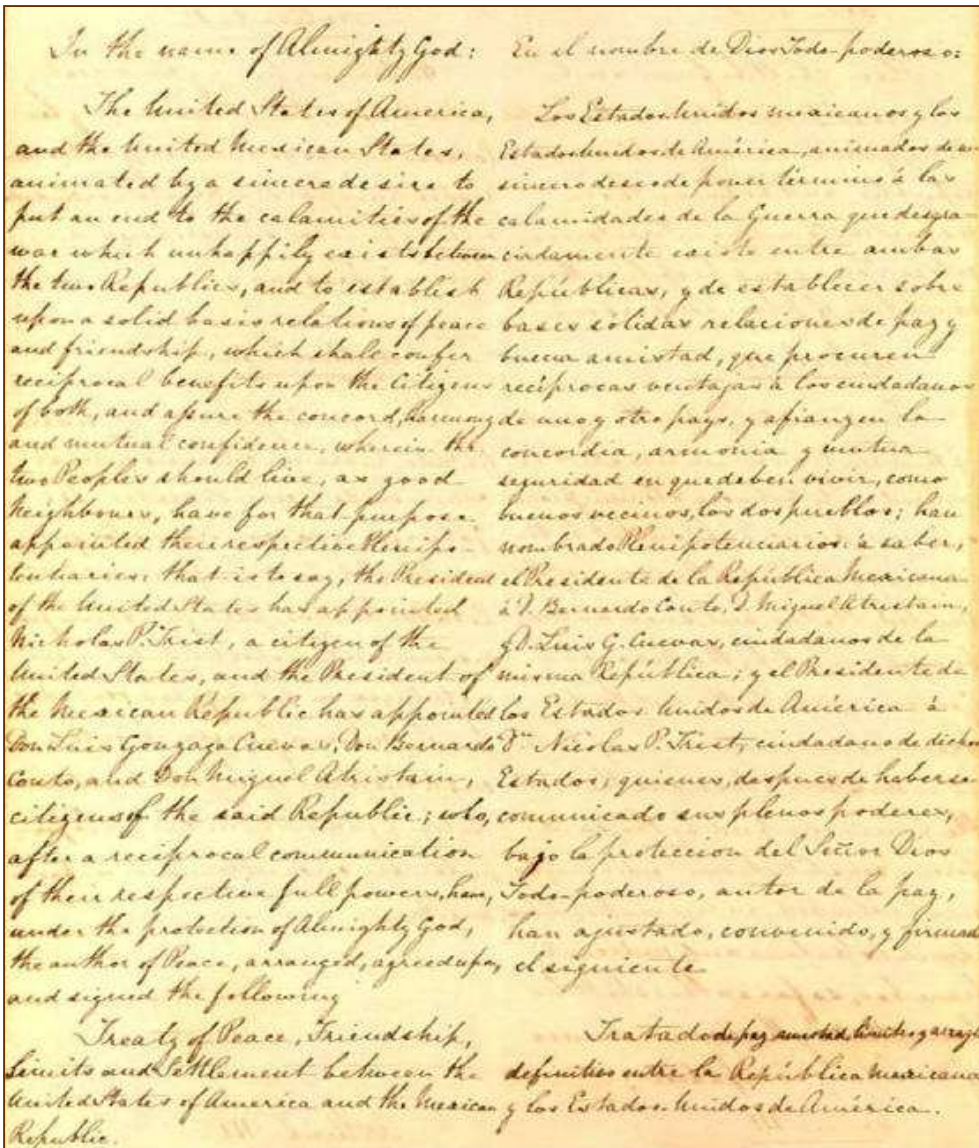 In the name of Almighty God:
The United States of America,
and the United Mexican States,
animated by a sincere desire to
put an end to the calamities of the
war which unhappily exists between
the two Republics, and to establish
upon a solid basis relations of peace
and friendship, which shall confer
reciprocal benefits upon the Citizens
of both, and assure the concord, harmony
and mutual confidence, wherein the
two Peoples should live, as good
Neighbours, have for that purpose
appointed their respective Plenipo-
tentiaries: that is to say, the President
of the United States has appointed
Nicholas P. Trist, a citizen of the
United States, and the President of
the Mexican Republic has appointed
Don Luis Gonzaga Cuevas, Don Bernardo
Couto, and Don Miguel Atristain,
citizens of the said Republic; who,
after a reciprocal communication
of their respective full powers, have,
under the protection of Almighty God,
the author of Peace, arranged, agreed upon,
and signed the following
Treaty of Peace, Friendship,
Limits and Settlement between the
United States of America and the Mexican
Republic.
En el nombre de Dios Todo-poderoso:
Los Estados Unidos mexicanos y los
Estados Unidos de América, animados de un
sincero deseo de poner término á las
calamidades de la Guerra que desgra-
ciadamente existe entre ambas
Repúblicas, y de establecer sobre
bases sólidas relaciones de paz y
buena amistad, que procuren
recíprocas ventajas á los ciudadanos
de uno y otro pays, y afianzen la
concordia, armonia y mutua
seguridad en que deben vivir, como
buenos vecinos, los dos pueblos; han
nombrado Plenipotenciarios: á saber,
el Presidente de la República Mexicana
á D. Bernardo Couto, D. Miguel Atristain,
y D. Luis G. Cuevas, ciudadanos de la
misma República; y el Presidente de
los Estados Unidos de América á
Dn. Nicolas P. Trist, ciudadano de dichos
Estados; quienes, despues de haberse
comunicado sus plenos poderes,
bajo la proteccion del Señor Dios
Todo-poderoso, autor de la paz,
han ajustado, convenido, y firmado
el siguiente
Tratado de paz, amistad, límites y arreglo
definitivo entre la República mexicana
y los Estados Unidos de América.